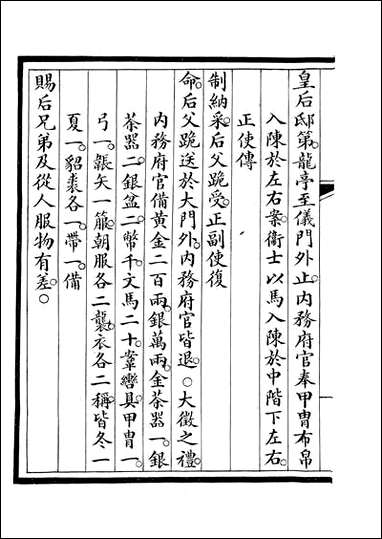 皇后邸第。龍亭至儀門外止。內務府官奉甲冑布帛
入陳於左右案。衛士以馬入陳於中階下左右。
正使傳
制納采。后父跪受。正副使復
命。后父跪送於大門外。內務府官皆退。○大徵之禮。
內務府官備黃金二百兩。銀萬兩。金茶器一。銀
茶器二。銀盆二。幣千。文馬二十。鞌轡具。甲冑一。
弓一。韔矢一箙。朝服各二襲。衣各二稱。皆冬一
夏一。貂裘各一。帶一。備
賜后兄弟及從人服物有差。○